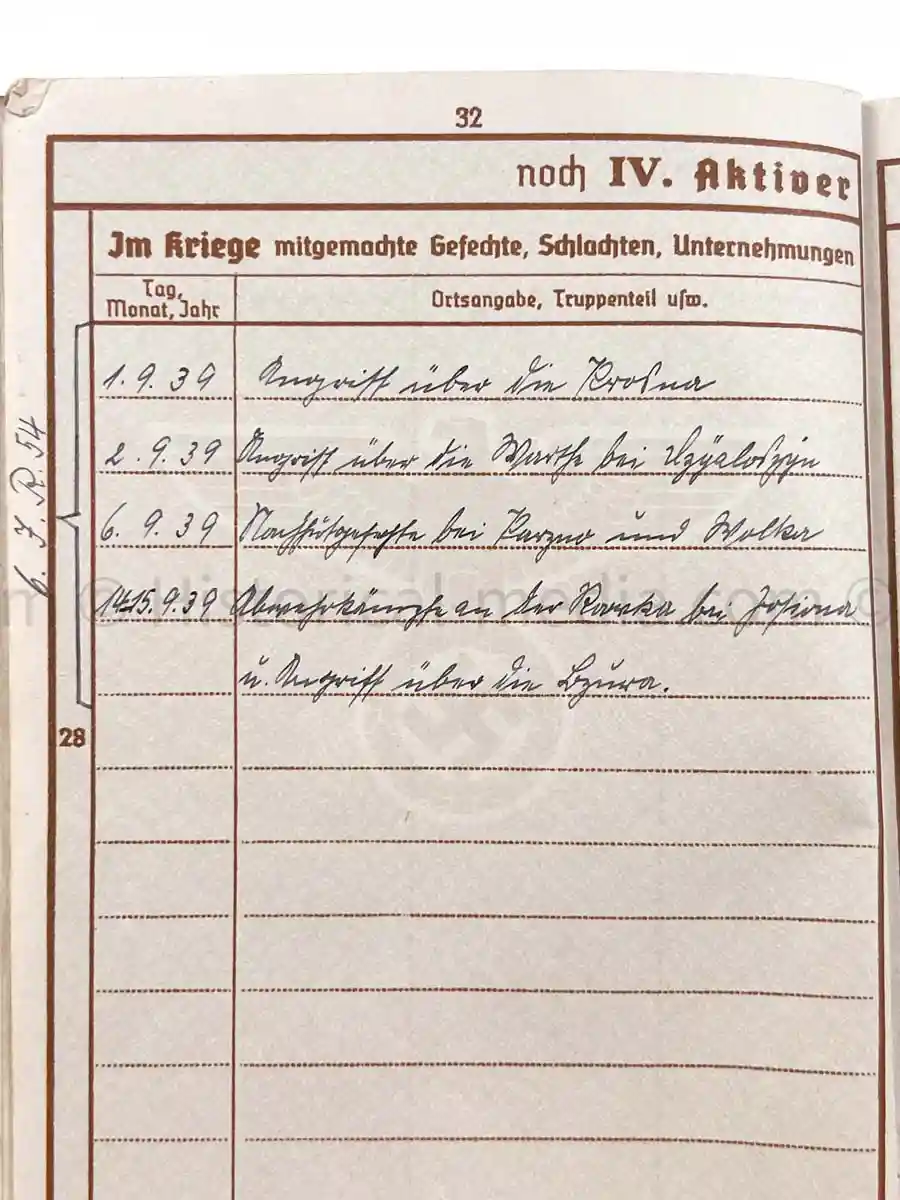 32
noch IV. Aktiver
Im Kriege mitgemachte Gefechte, Schlachten, Unternehmungen
Tag, Monat, Jahr
Ortsangabe, Truppenteil usw.
6. J. R. 54
1. 9. 39 Angriff über die Prosna
2. 9. 39 Angriff über die Warthe bei Dzialoszyn
6. 9. 39 Nachhutgefechte bei Parzno und Wolka
14.-15. 9. 39 Abwehrkämpfe an der Rawka bei
u. Angriff über die Bzura.
28
© Historical-media.com ©